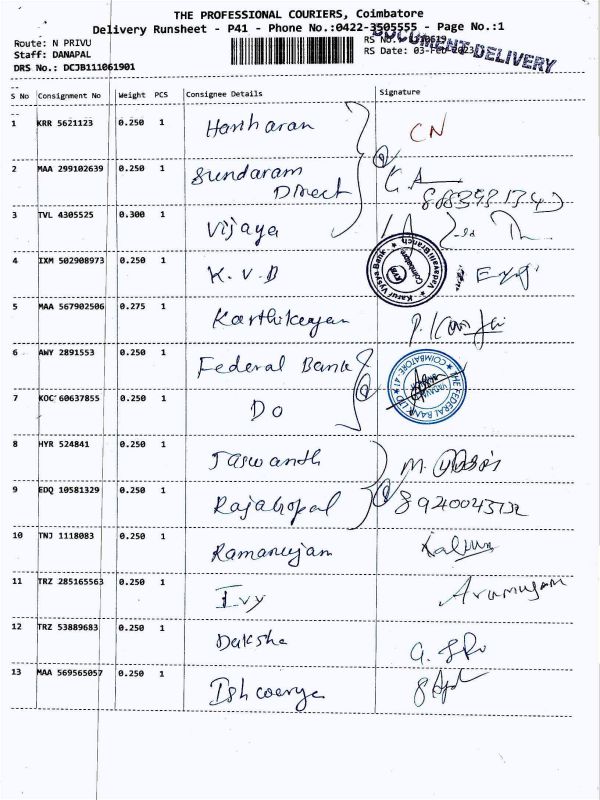 THE PROFESSIONAL COURIERS, Coimbatore
Delivery Runsheet - P41 - Phone No.:0422-3505555 - Page No.:1
Route: N PRIVU
RS No.:
Staff: DANAPAL
RS Date: 03-Feb-2023
DOCUMENT DELIVERY
DRS No.: DCJB111061901
S No Consignment No Weight PCS Consignee Details Signature
1 KRR 5621123 0.250 1 Hariharan CN
2 MAA 299102639 0.250 1 Sundaram
Direct
3 TVL 4305525 0.300 1 Vijaya
4 IXM 502908973 0.250 1 K.V.B
Karur Vysya Bank
Coimbatore
Vadavalli Branch
5 MAA 567902506 0.275 1 Karthikeyan
6 AWY 2891553 0.250 1 Federal Bank
THE FEDERAL BANK LTD
COIMBATORE - 41
7 KOC 60637855 0.250 1 Do
8 HYR 524841 0.250 1 Jaswanth M.
9 EDQ 10581329 0.250 1 RajaGopal
10 TNJ 1118083 0.250 1 Ramanujam
11 TRZ 285165563 0.250 1 Ivy Arumugam
12 TRZ 53889683 0.250 1 Daksha
13 MAA 569565057 0.250 1